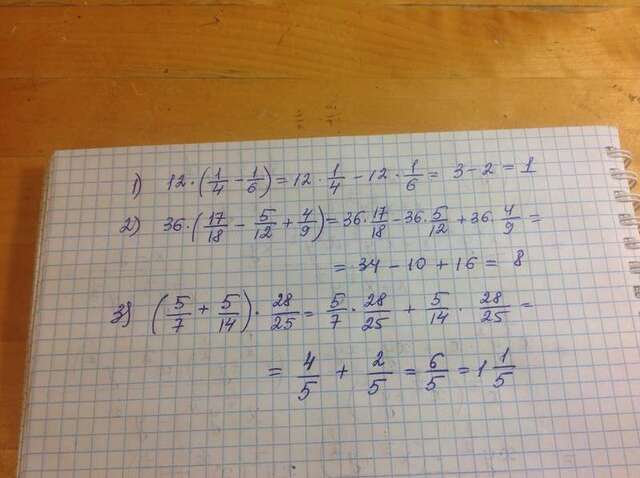 1) 12·(1/4 - 1/6) = 12·1/4 - 12·1/6 = 3 - 2 = 1
2) 36·(17/18 - 5/12 + 4/9) = 36·17/18 - 36·5/12 + 36·4/9 =
= 34 - 10 + 16 = 8
3) (5/7 + 5/14)·28/25 = 5/7·28/25 + 5/14·28/25 =
= 4/5 + 2/5 = 6/5 = 1 1/5